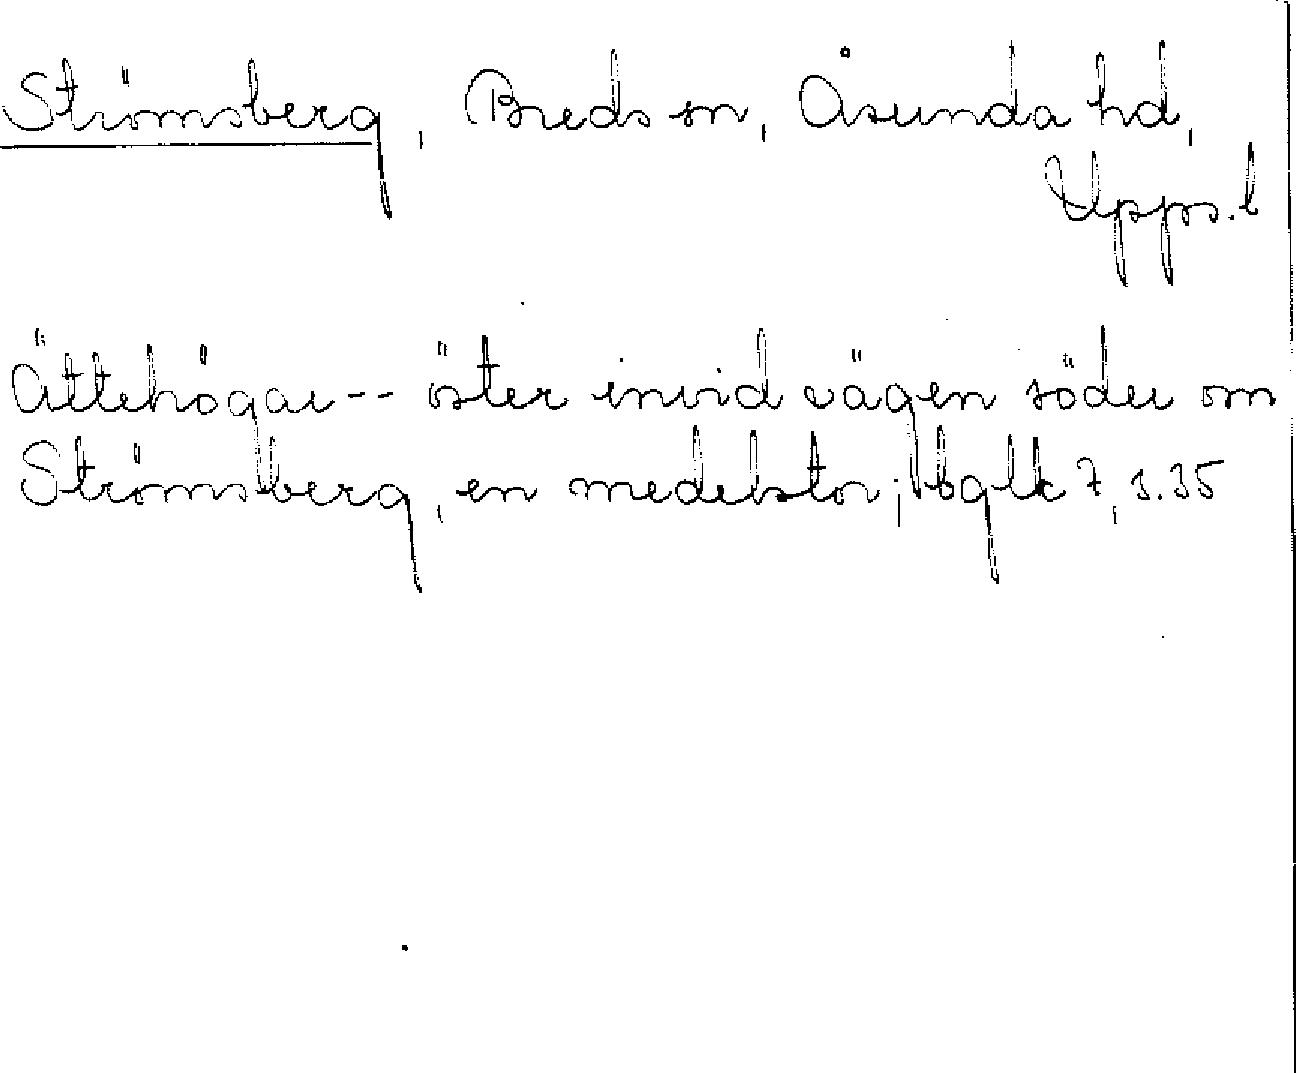 Strömsberg, Breds sn, Åsunda hd,
Upps. l
Ättehögar -- öster invid vägen söder om
Strömsberg, en medelstor; 7, s. 35